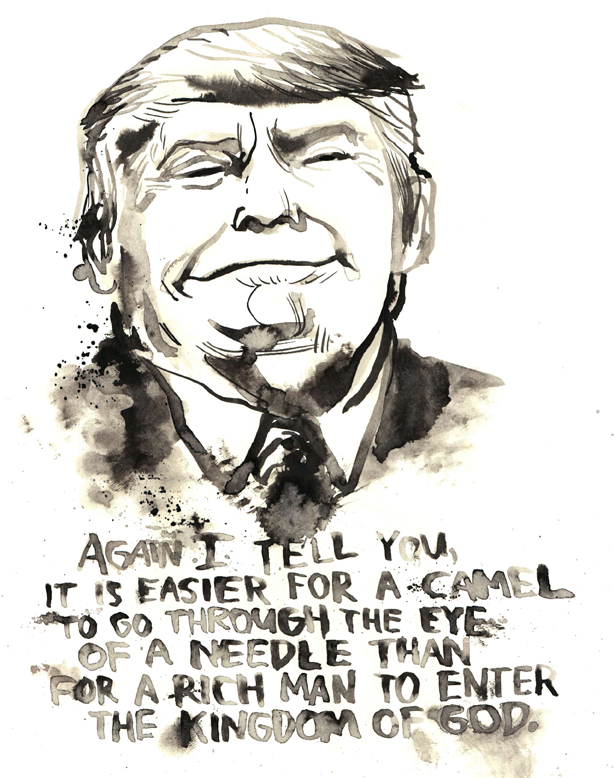 AGAIN I TELL YOU,
IT IS EASIER FOR A CAMEL
TO GO THROUGH THE EYE
OF A NEEDLE THAN
FOR A RICH MAN TO ENTER
THE KINGDOM OF GOD.